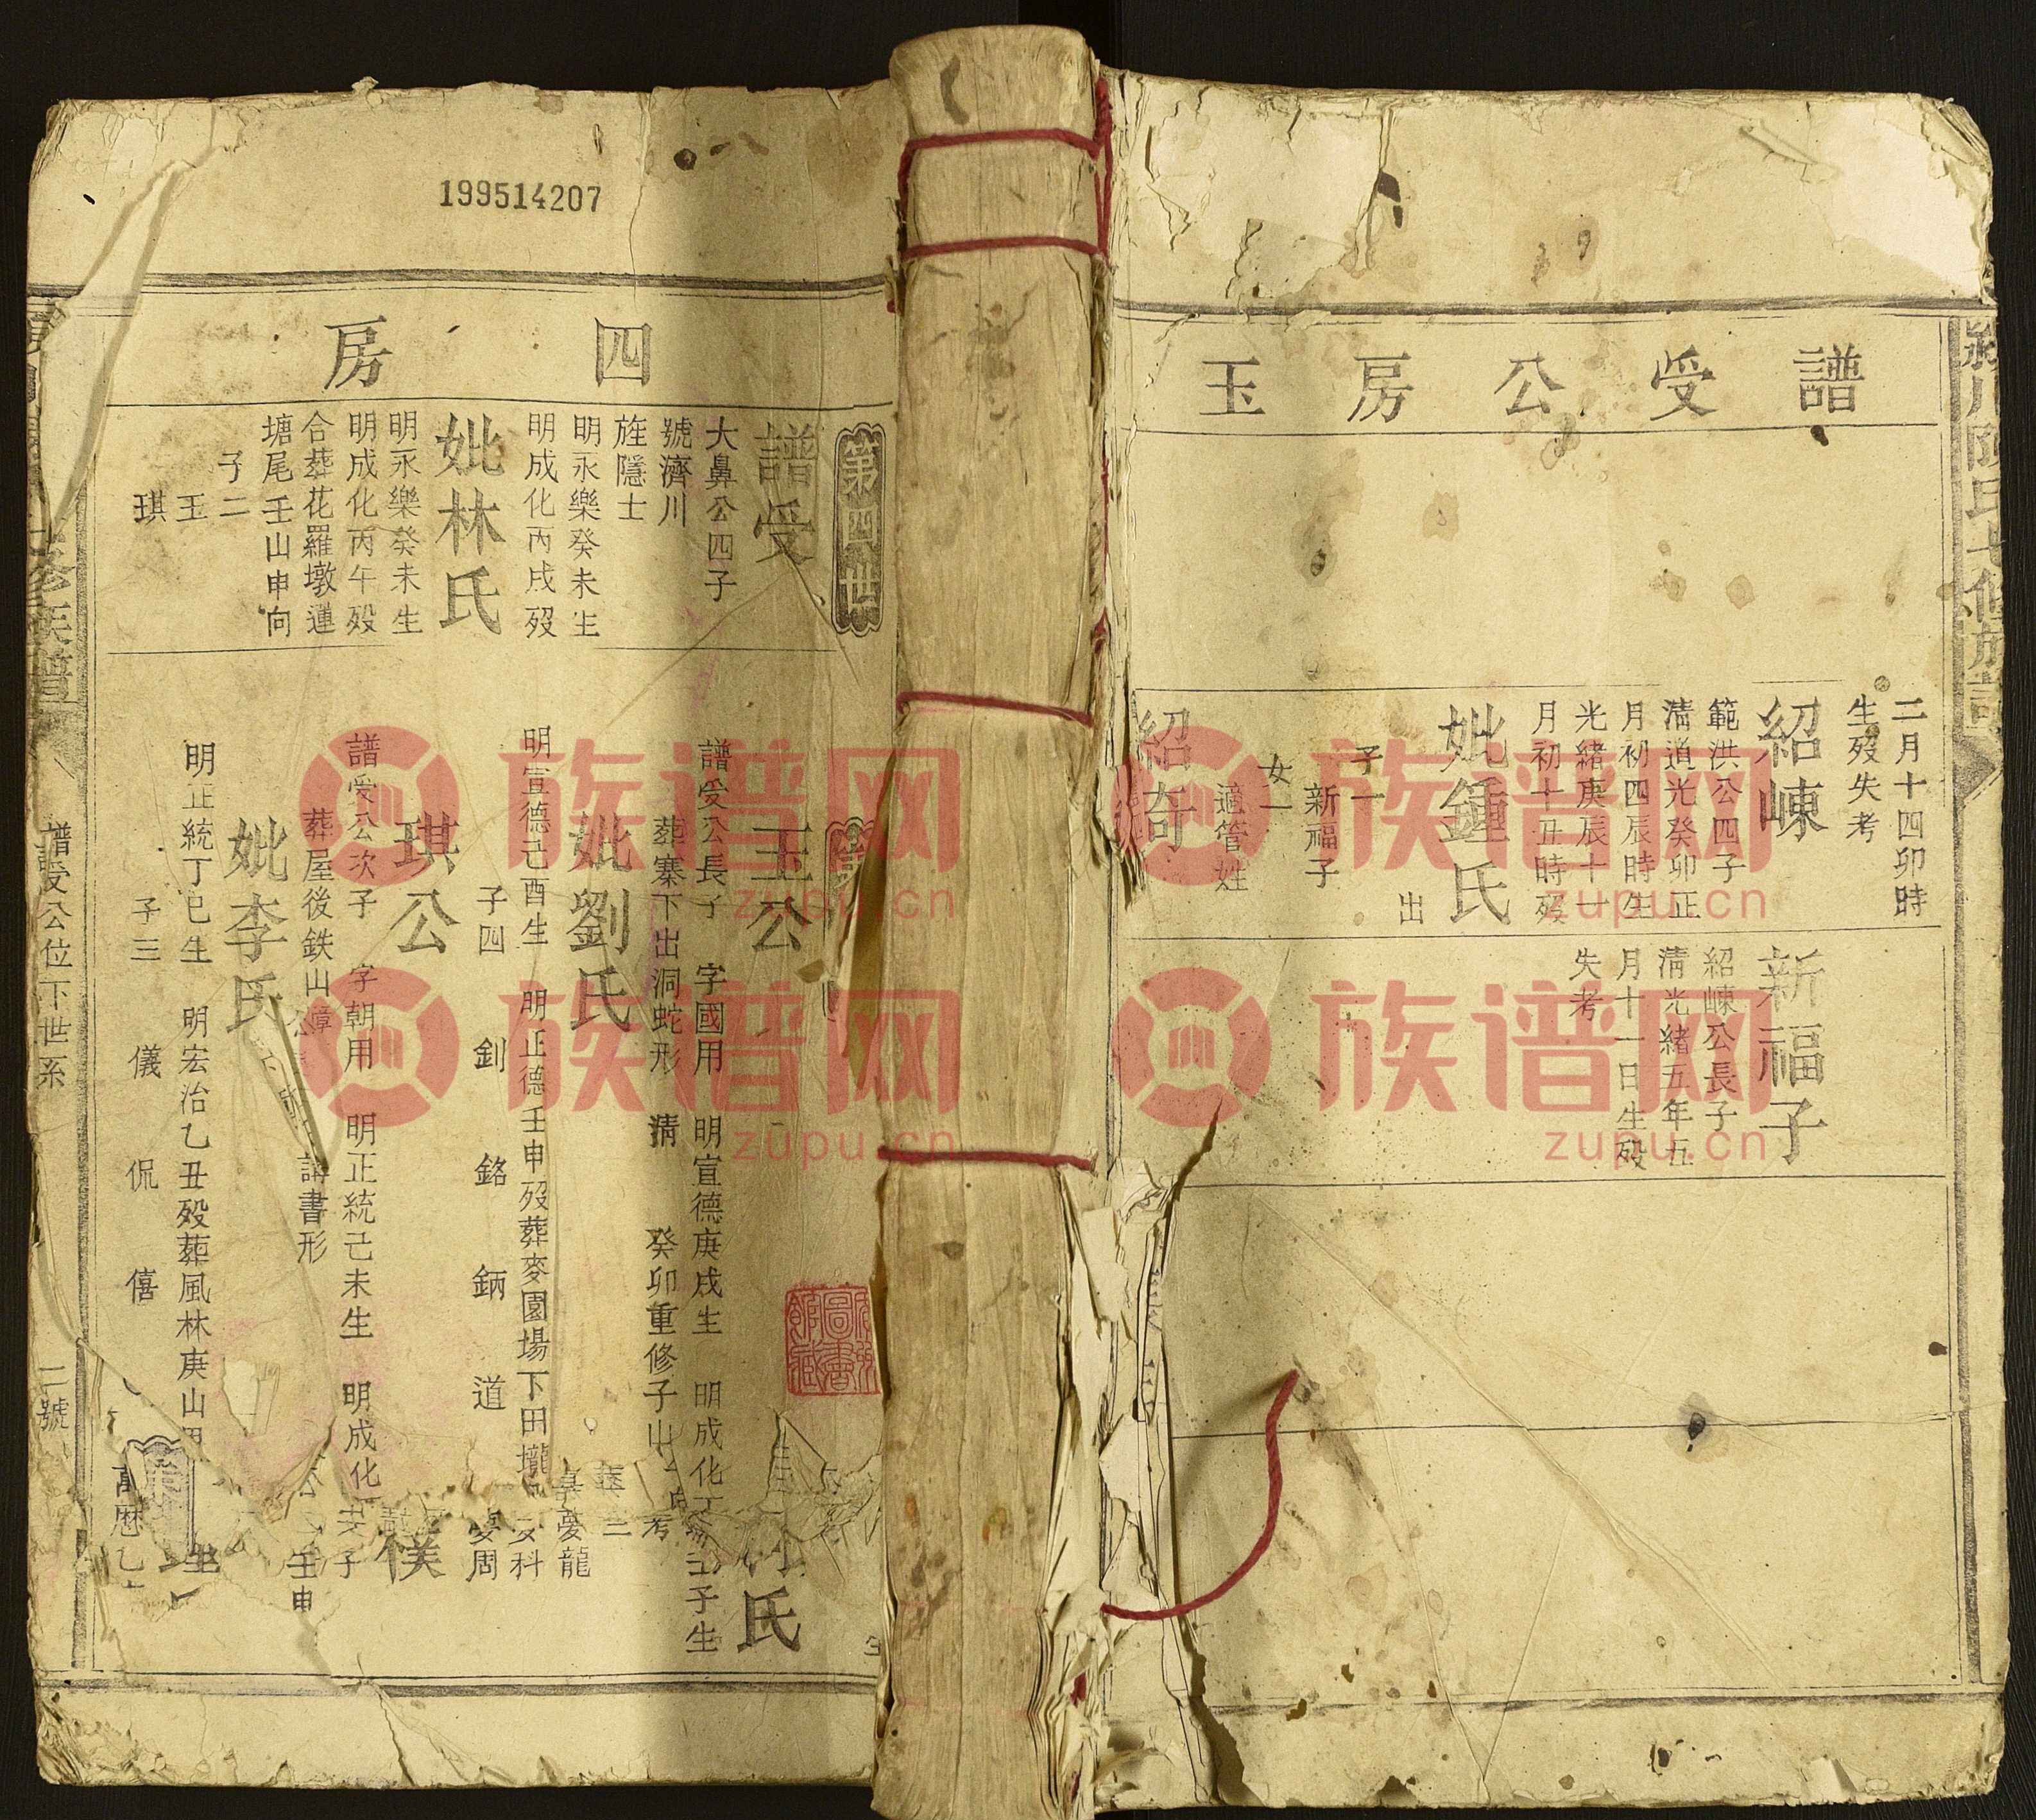 譜受公房玉
二月十四卯時
生歿失考
紹崠
範洪公四子
清道光癸卯正
月初四辰時生
光緒庚辰十一
月初十丑時歿
妣鍾氏
出
子一
新福子
女一
適管姓
紹奇
新福子
紹崠公長子
清光緒五年五
月十一日生歿
失考
199514207
四房
第四世
譜受
大鼻公四子
號濟川
旌隱士
明永樂癸未生
明成化丙戌歿
妣林氏
明永樂癸未生
明成化丙午歿
合葬花羅墩蓮
塘尾壬山申向
子二
玉
琪
玉公
譜受公長子 字國用 明宣德庚戌生 明成化
葬寨下出洞蛇形 清 癸卯重修子山
妣劉氏
明宣德己酉生 明正德壬申歿葬麥園場下田壠
子四 釗 銘 鈵 道
琪公
譜受公次子 字朝用 明正統己未生 明成化
葬屋後鉄山嶂
講書形
妣李氏
明正統丁巳生 明宏治乙丑歿葬風林庚山
子三 儀 侃 僖
氏
子生
考
夢龍
文科
夢周
樸
子
壬申
萬曆乙
譜受公位下世系
二號
族谱网
zupu.cn
族谱网
zupu.cn
族谱网
zupu.cn
族谱网
zupu.cn